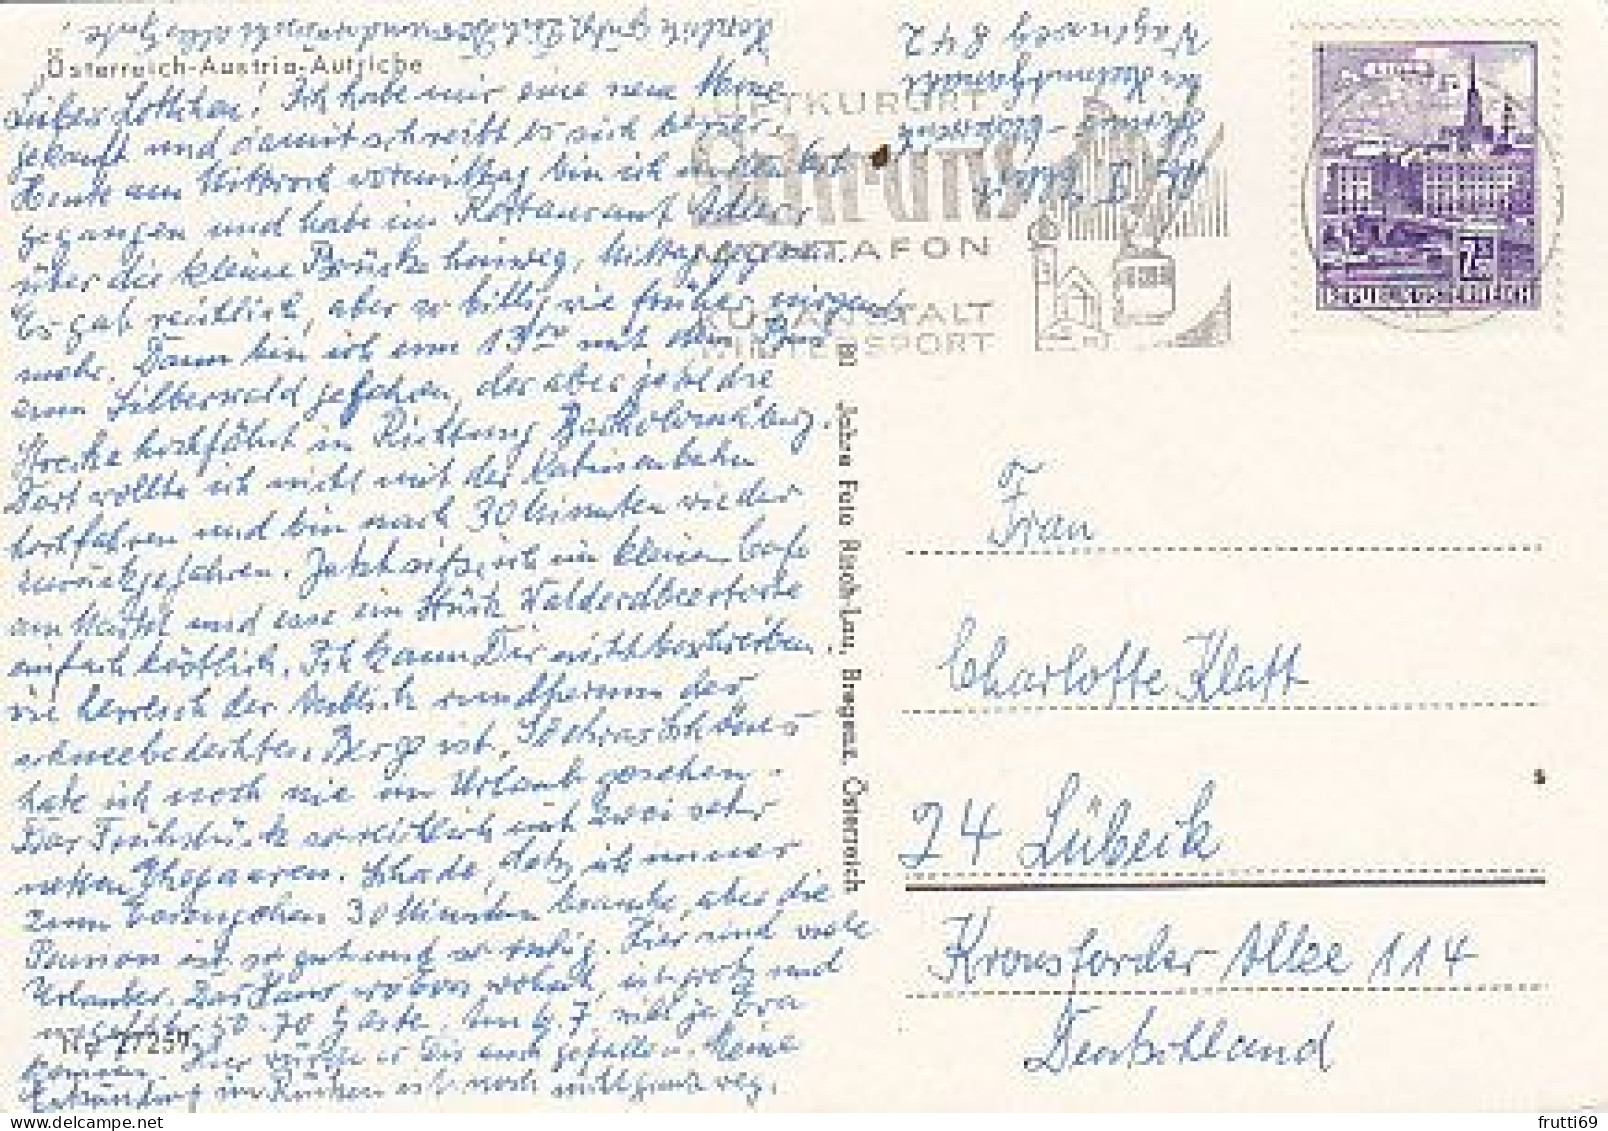 Österreich-Austria-Autriche
Liebes Lottchen! Ich habe mir eine neue Mine
gekauft und damit schreibt es sich besser.
Heute am Mittwoch vormittag bin ich in den Ort
gegangen und habe im Restaurant Adler
über die kleine Brücke hinweg, Mittag gegessen.
Es gab reichlich, aber so billig wie früher nirgends
mehr. Dann bin ich um 13⁰⁰ mit dem Bus
zum Silbertal gefahren, der aber
Strecke hochfährt in Richtung
Dort wollte ich nicht mit der Kabinenbahn
hochfahren und bin nach 30 Minuten wieder
zurückgefahren. Jetzt sitze ich im kleinen Cafe
am und esse ein Stück Walderdbeertorte
einfach köstlich. Ich kann Dir nicht beschreiben,
wie herrlich der Anblick rundherum der
schneebedeckten Berge ist. So etwas Schönes
habe ich noch nie im Urlaub gesehen.
Das Frühstück reichlich mit zwei sehr
netten Ehepaaren. Schade, daß ich immer
zum 30 Minuten brauche, aber die
Pension ist so gut und so ruhig. Hier sind viele
Urlauber. Das Haus wo ich wohne, ist groß und
ungefähr 50-70 Gäste. Am 6.7. will ja Eva
kommen. Hier würde es Dir auch gefallen.
Erkältung im Rücken ist noch nicht ganz weg.
No 27257
80 Jahre Foto Risch-Lau, Bregenz, Österreich
LUFTKURORT
Schruns
MONTAFON
KURANSTALT
WINTERSPORT
REPUBLIK ÖSTERREICH
Frau
Charlotte Klatt
24 Lübeck
Kronsforder Allee 114
Deutschland
frutti69